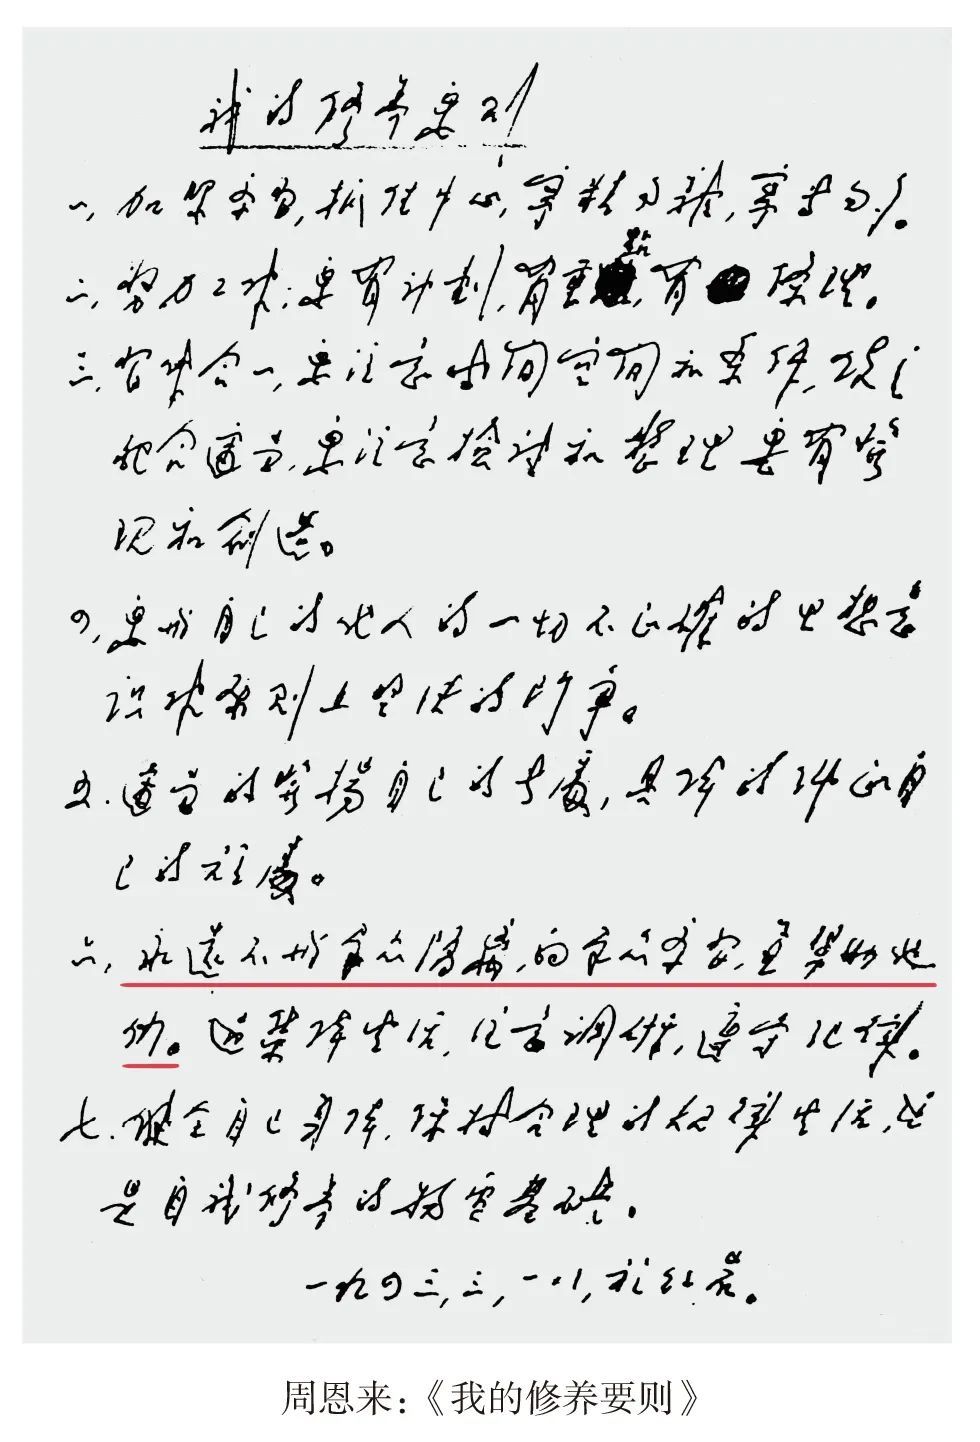 我的修养要则
一、加紧学习,抓住中心,宁精勿杂,宁专勿多。
二、努力工作,要有计划,有重点,有条理。
三、习作合一,要注意时间空间和条件,使之
配合适当,要注意检讨和整理,要有发
现和创造。
四、要与自己的他人的一切不正确的思想意
识作原则上坚决的斗争。
五、适当的发扬自己的长处,具体的纠正自
己的短处。
六、永远不与群众隔离,向群众学习,并帮助他
们。过集体生活,注意调研,遵守纪律。
七、健全自己身体,保持合理的规律生活,这
是自我修养的物质基础。
一九四三,三,一八,于红岩。
周恩来:《我的修养要则》